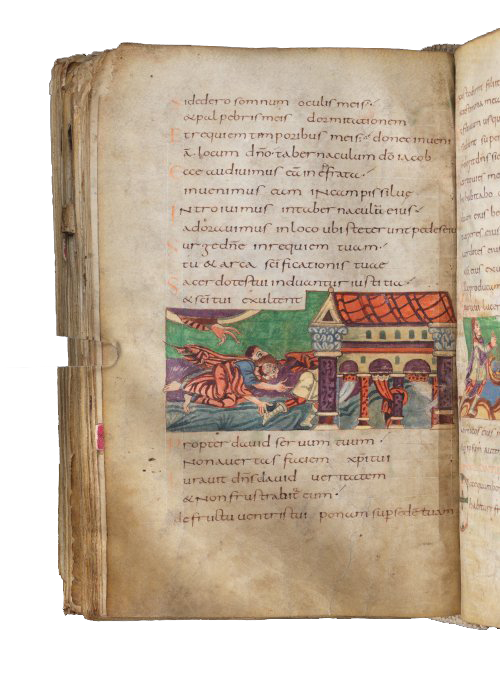 Sidedero somnum oculis meis·
& palpebris meis dormitationem
Et requiem temporibus meis· donec inueni
ā locum dn̄o· tabernaculum dō iacob
Ecce audiuimus eā in efrata·
inuenimus eam in campis siluę
Introiuimus in tabernaculū eius·
adorauimus in loco ubi steterunt pedes eius
Surge dn̄e in requiem tuam·
tu & arca sc̄ificationis tuae
Sacerdotes tui induantur iustitia·
& sc̄i tui exultent
Propter dauid seruum tuum·
Non auertas faciem xp̄i tui
Iurauit dn̄s dauid ueritatem
& non frustrabit̄ eum·
de fructu uentris tui ponam sup sedē tuam